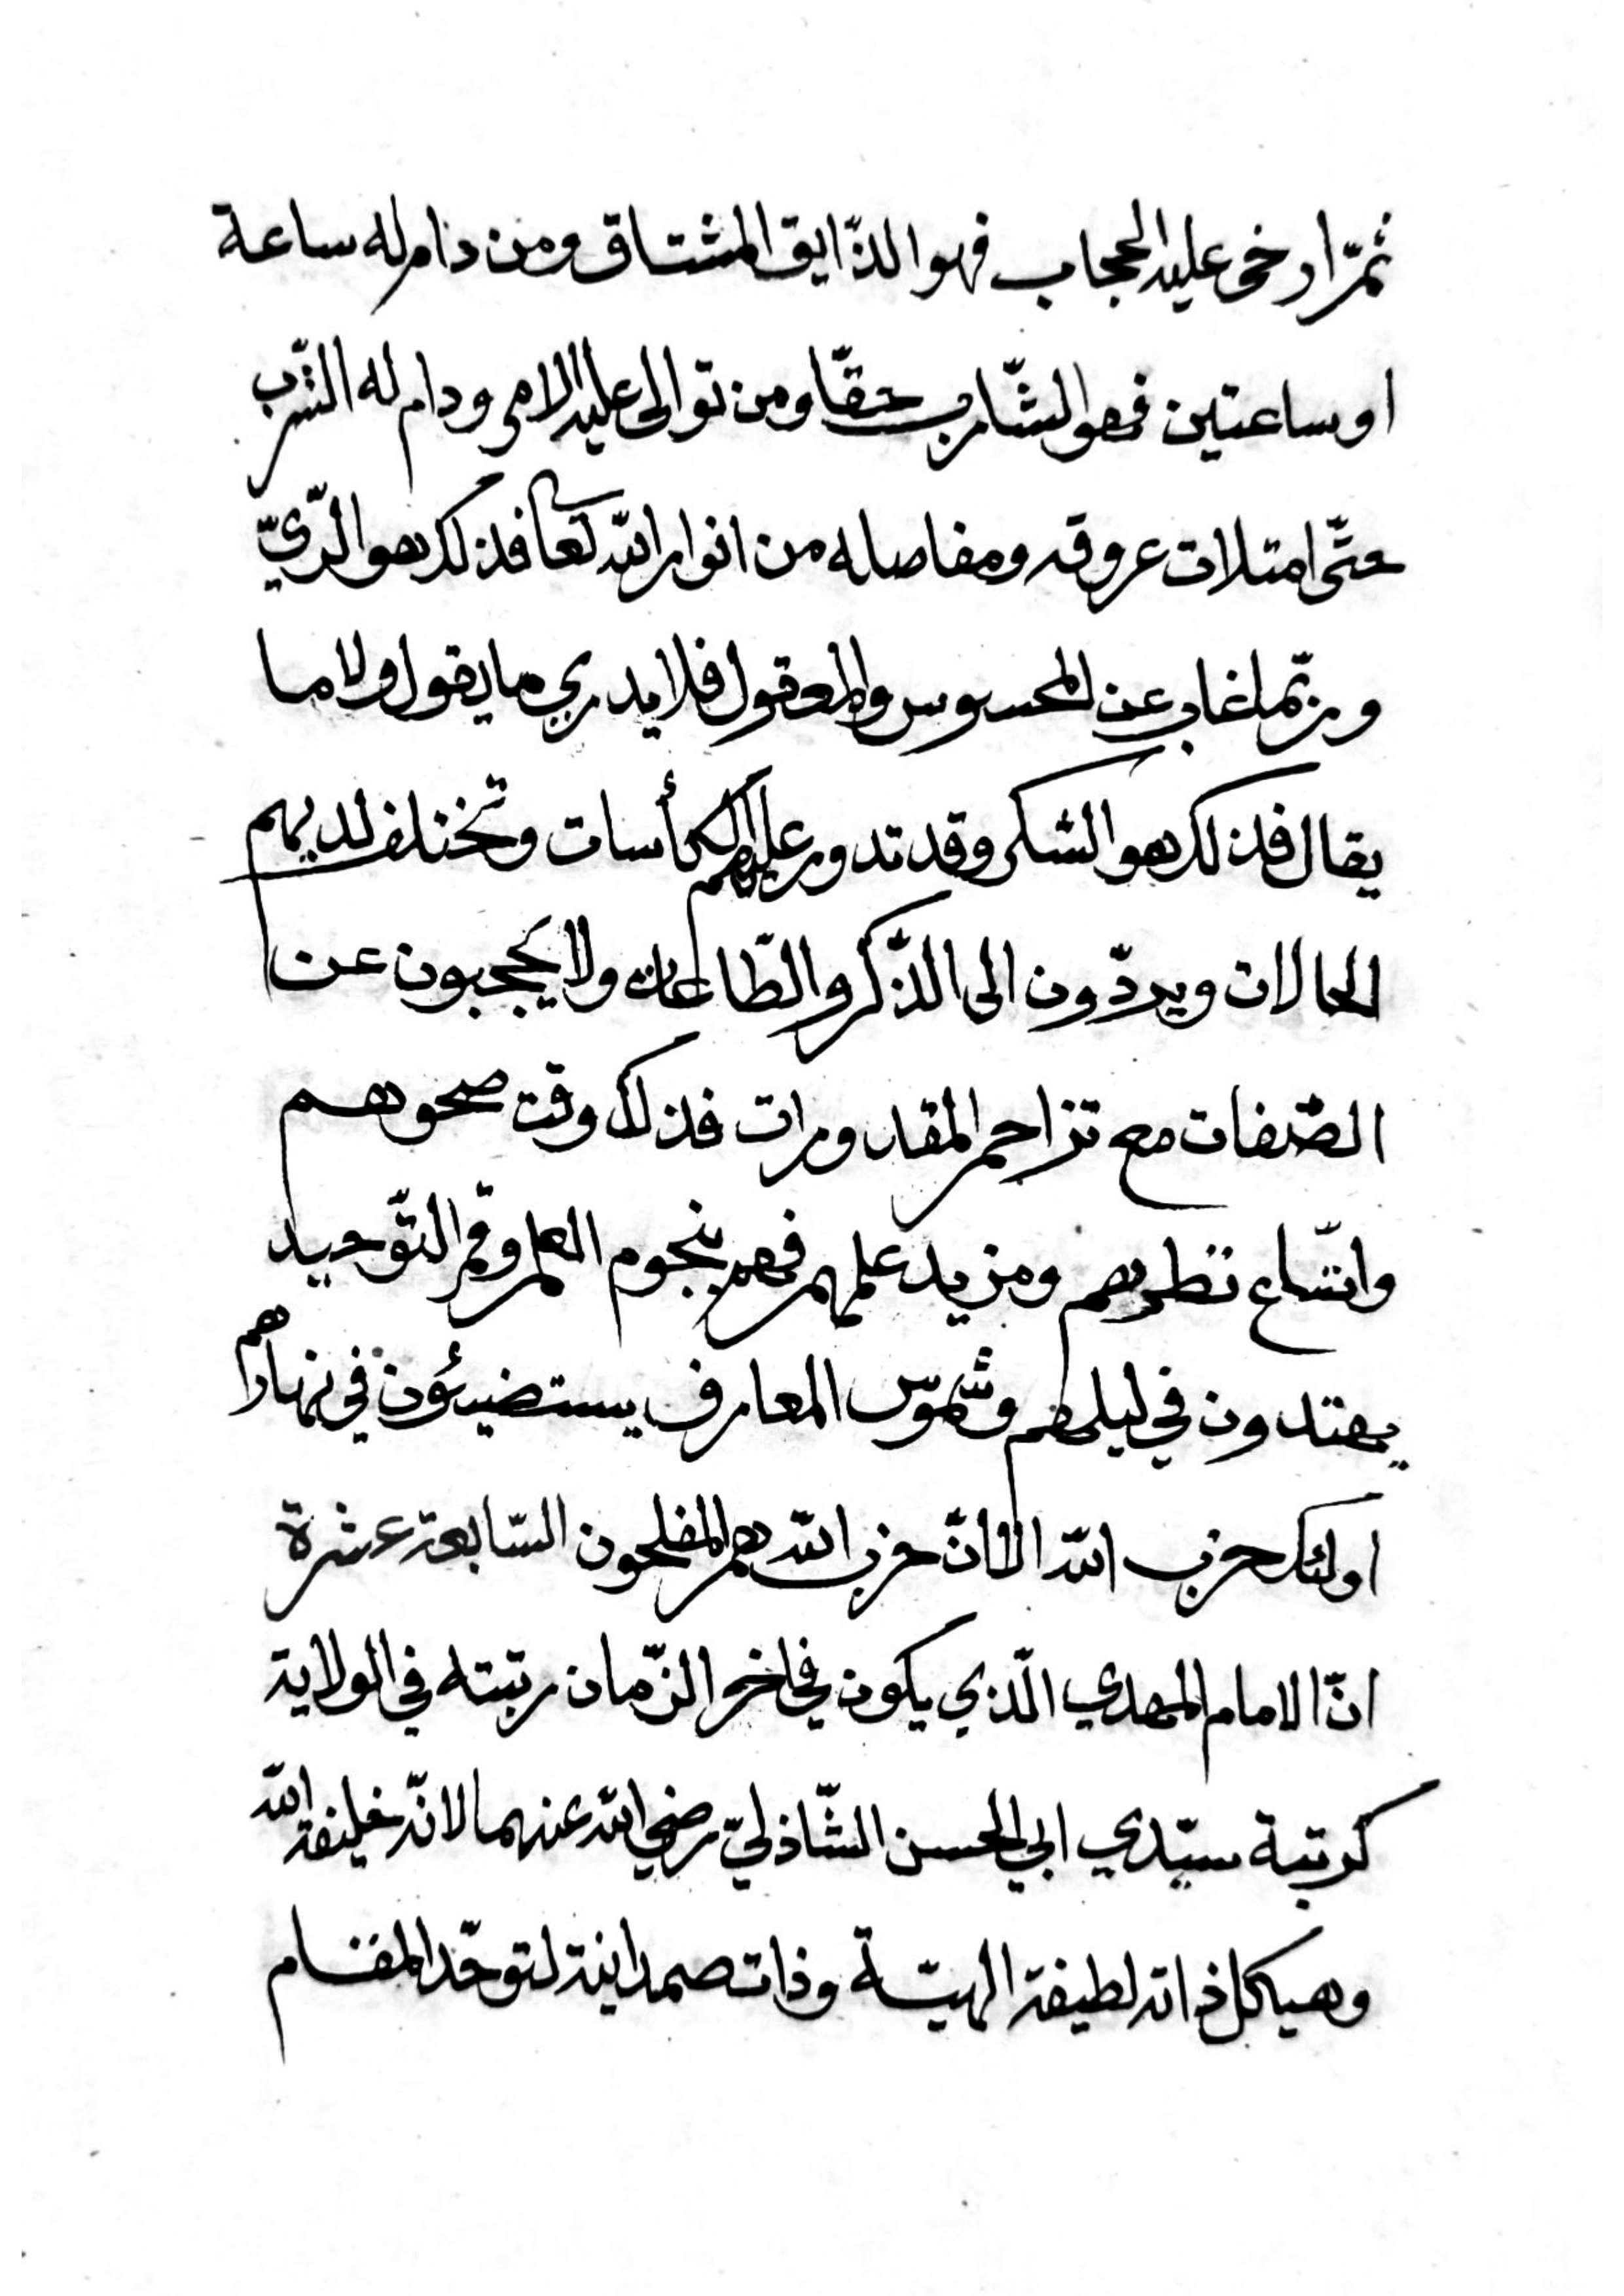 ثمّ ارخى عليه الحجاب فهو الذّايق المشتاق ومن دام له ساعة
او ساعتين فهو الشّارب حقّا ومن توالى عليه الامر ودام له الشّرب
حتّى امتلات عروقه ومفاصله من انوار الله تعا فذلك هو الرّيّ
وربّما غاب عن المحسوس والمعقول فلا يدري ما يقول ولا ما
يقال فذلك هو الشكر وقد تدور عليهم الكأسات وتختلف لديهم
الحالات ويردّون الى الذّكر والطّاعات ولا يحجبون عن
الصّفات مع تزاحم المقدورات فذلك وقت صحوهم
واتّساع نظرهم ومزيد علمهم فهم بنجوم العلم وقمر التّوحيد
يهتدون في ليلهم وشموس المعارف يستضيئون في نهارهم
اولئك حزب الله الا انّ حزب الله هم المفلحون السّابعة عشرة
انّ الامام المهدي الّذي يكون في اخر الزّمان رتبته في الولاية
كرتبة سيّدي ابي الحسن الشّاذليّ رضي الله عنهما لانّه خليفة الله
وهيكل ذاته لطيفة الهيّة وذات صمدانية لتوحّد المقام